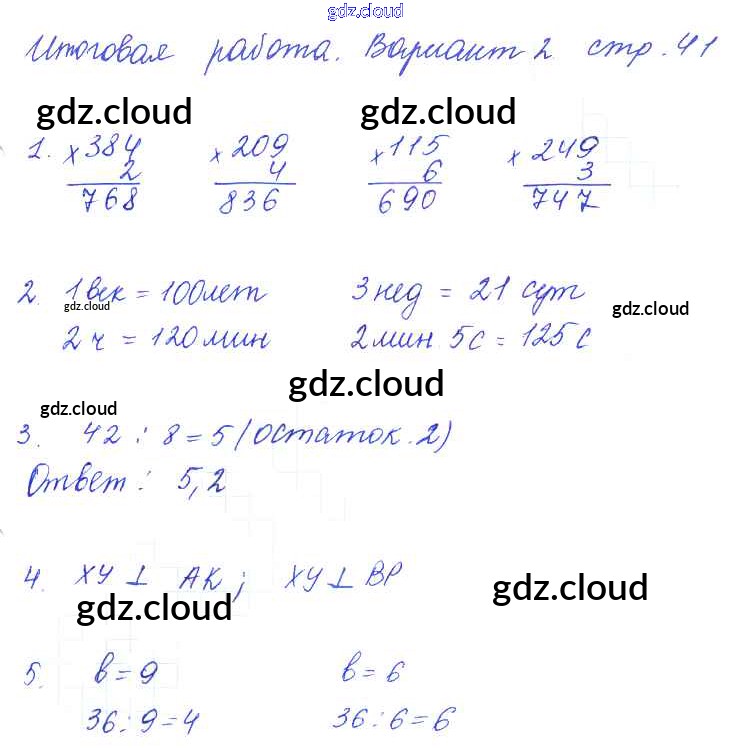 gdz.cloud
Итоговая работа. Вариант 2 стр. 41
gdz.cloud gdz.cloud
1. ×384 ×209 ×115 ×249
2 4 6 3
768 836 690 747
2. 1 век = 100 лет 3 нед = 21 сут
gdz.cloud gdz.cloud
2 ч = 120 мин 2 мин 5 с = 125 с
gdz.cloud
gdz.cloud
3. 42 : 8 = 5 (остаток. 2)
Ответ: 5,2
4. ХУ ⊥ АК; ХУ ⊥ ВР
gdz.cloud gdz.cloud
5. в = 9 в = 6
36 : 9 = 4 36 : 6 = 6